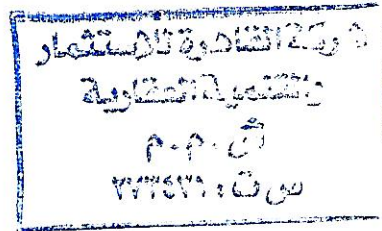 شركة القادرة للاستثمار
والتنمية العقارية
ش.م.م
س ت :